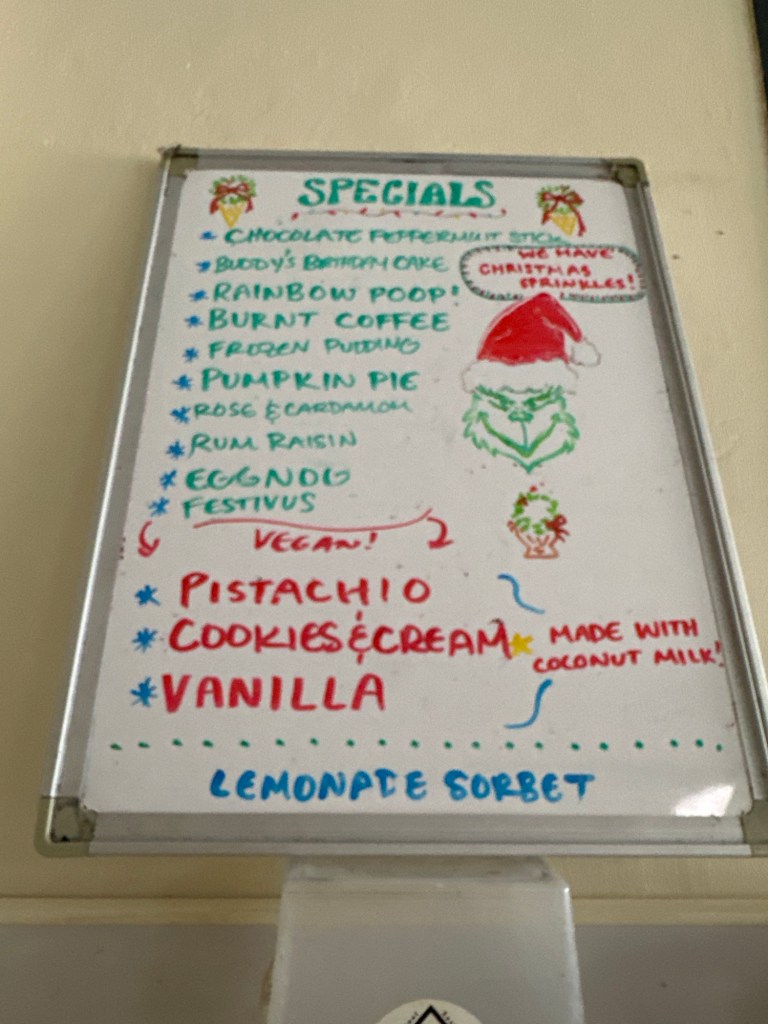 SPECIALS
* CHOCOLATE PEPPERMINT STICK
* BUDDY'S BIRTHDAY CAKE
WE HAVE
CHRISTMAS
SPRINKLES!
* RAINBOW POOP!
* BURNT COFFEE
* FROZEN PUDDING
* PUMPKIN PIE
* ROSE & CARDAMOM
* RUM RAISIN
* EGGNOG
* FESTIVUS
VEGAN!
* PISTACHIO
* COOKIES & CREAM
* VANILLA
* MADE WITH
COCONUT MILK!
LEMONADE SORBET